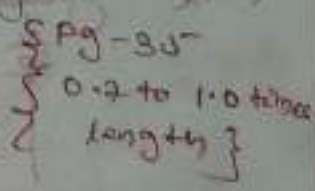 { pg - 35
0.7 to 1.0 times
length }